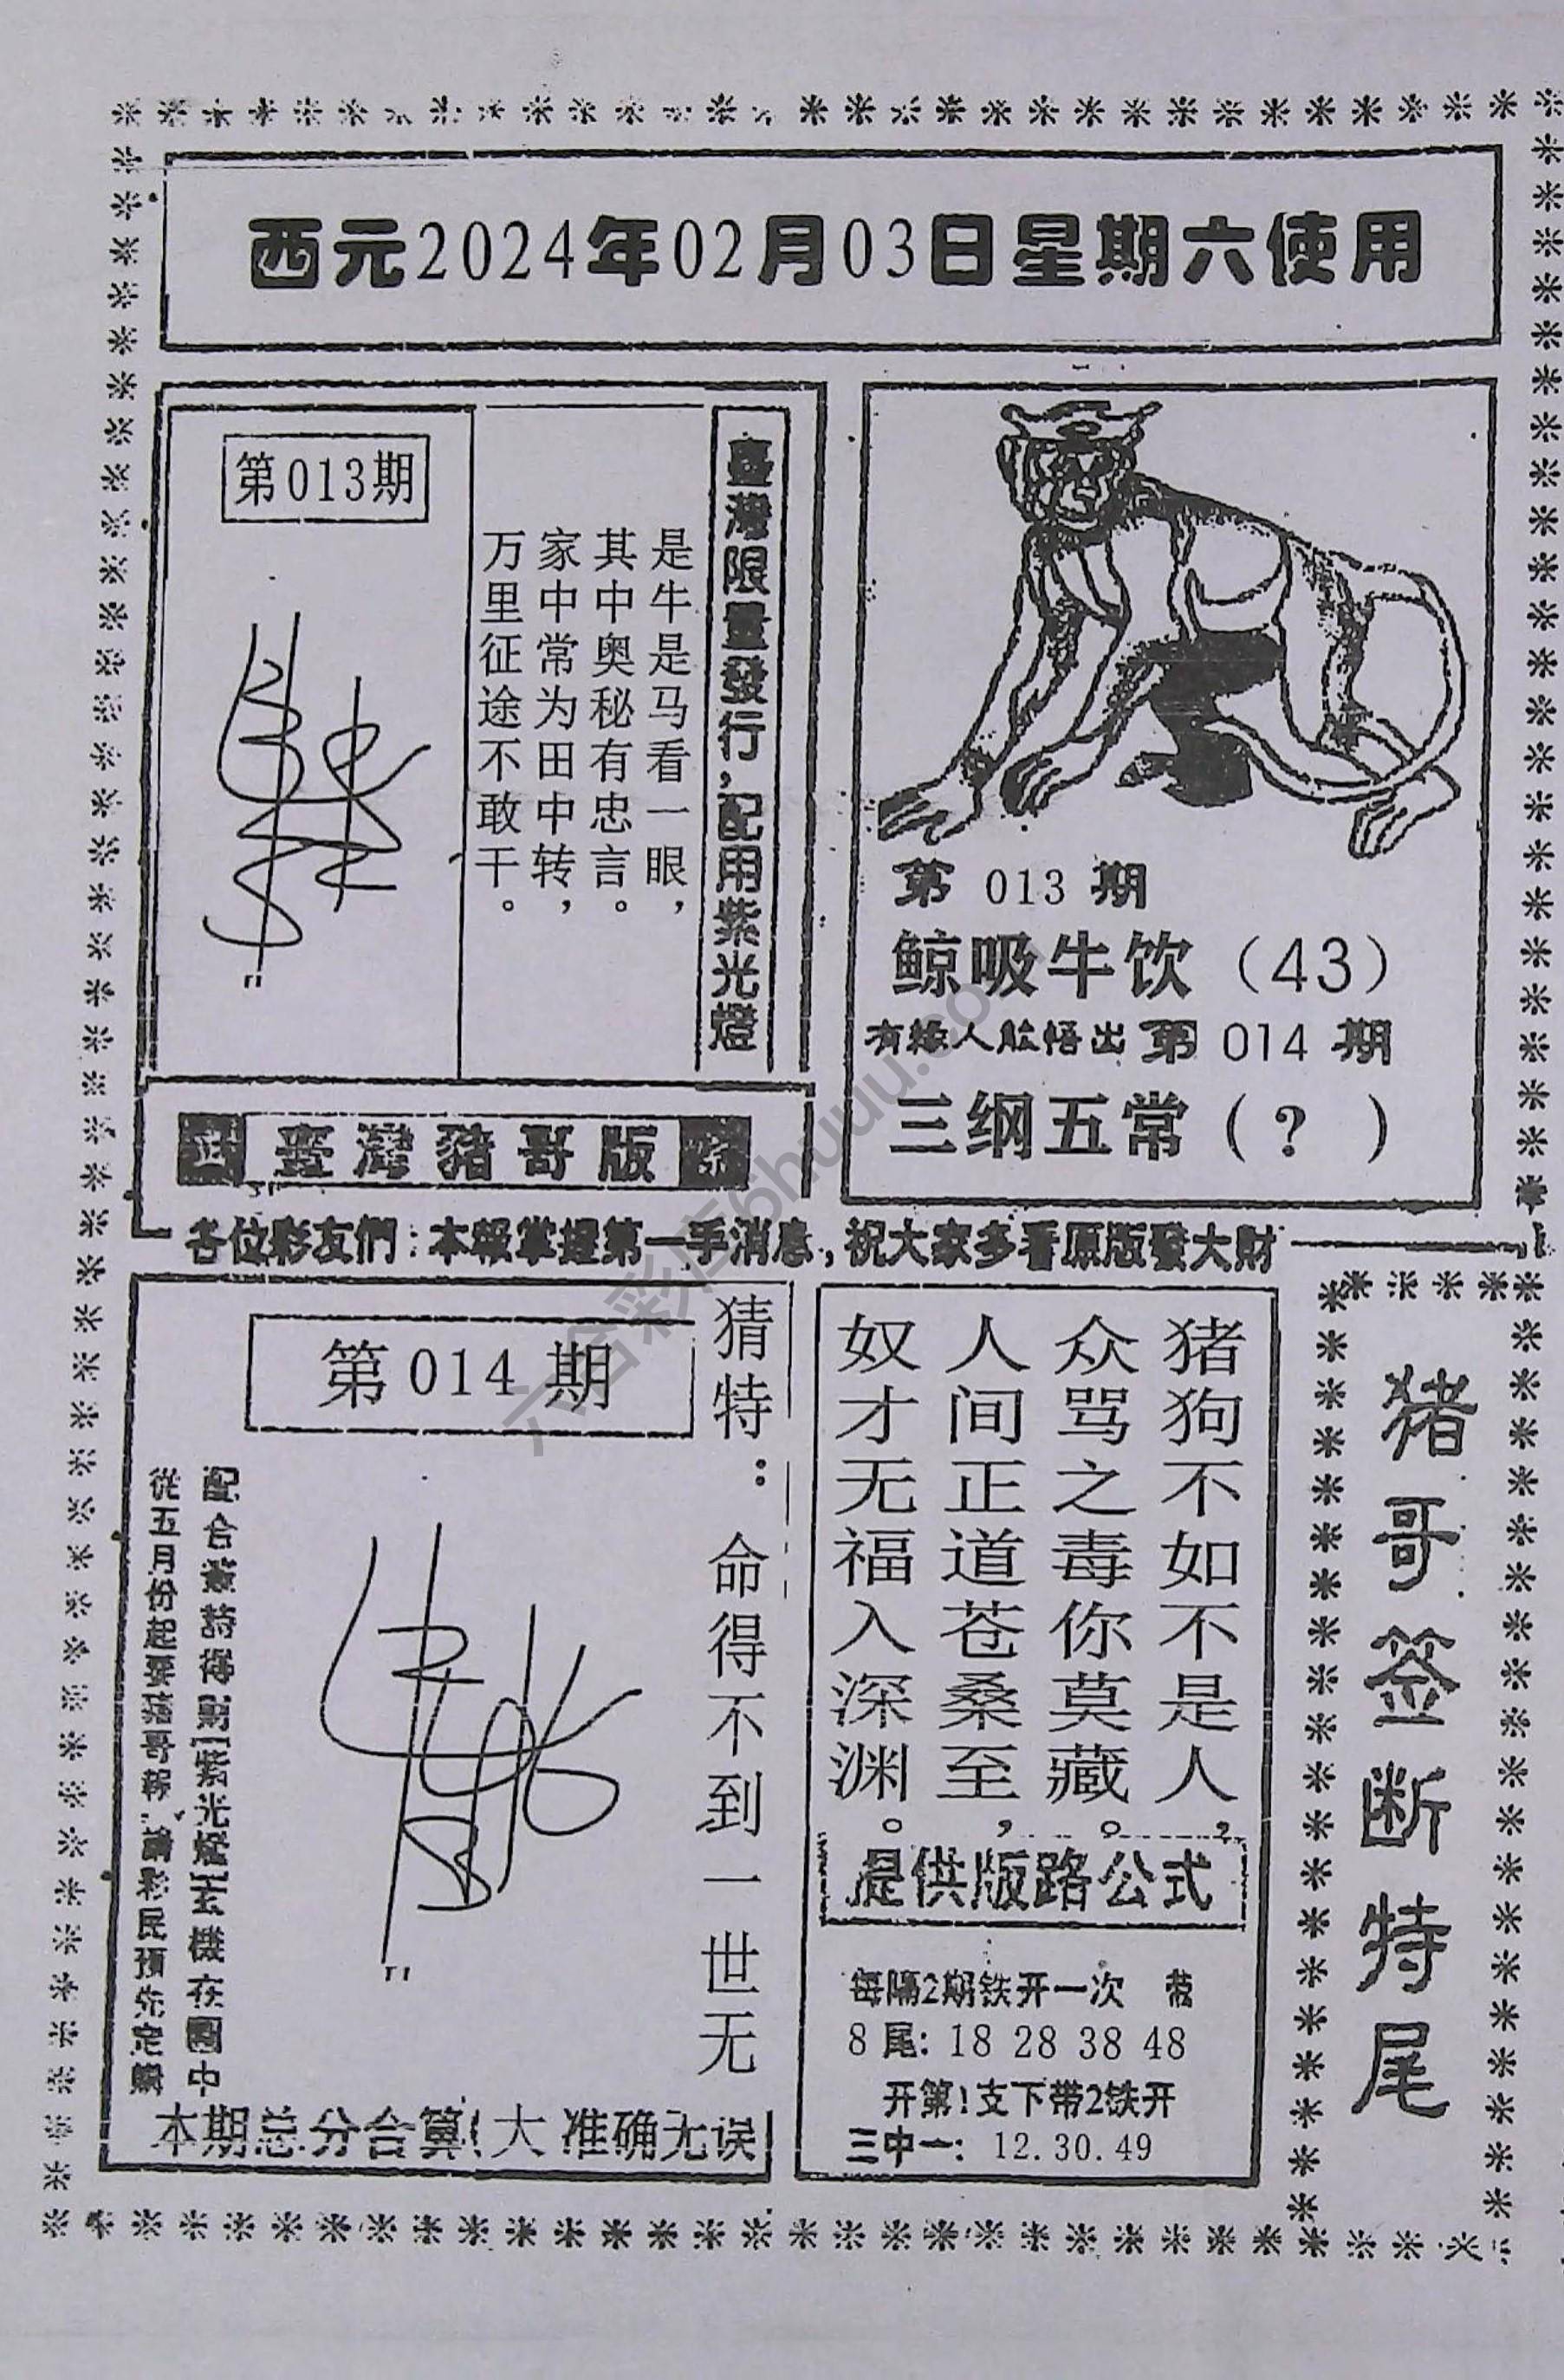 西元2024年02月03日星期六使用
臺灣限量發行,配用紫光燈
是牛是马看一眼,
其中奥秘有忠言。
家中常为田中转,
万里征途不敢干。
第013期
第 013 期
鲸吸牛饮（43）
有緣人能悟出 第 014 期
三纲五常（?）
正 臺灣豬哥版 宗
各位彩友們：本報掌握第一手消息,祝大家多看原版發大財
猜特：命得不到一世无
第 014 期
從五月份起要猪哥報,請彩民預先定購
本期总分合算（大 准确无误
猪狗不如不是人,
众骂之毒你莫藏。
人间正道苍桑至,
奴才无福入深渊。
提供版路公式
每隔2期铁开一次
8尾: 18 28 38 48
开第!支下带2铁开
三中一: 12.30.49
猪哥签断特尾
六合彩库6huuu.com